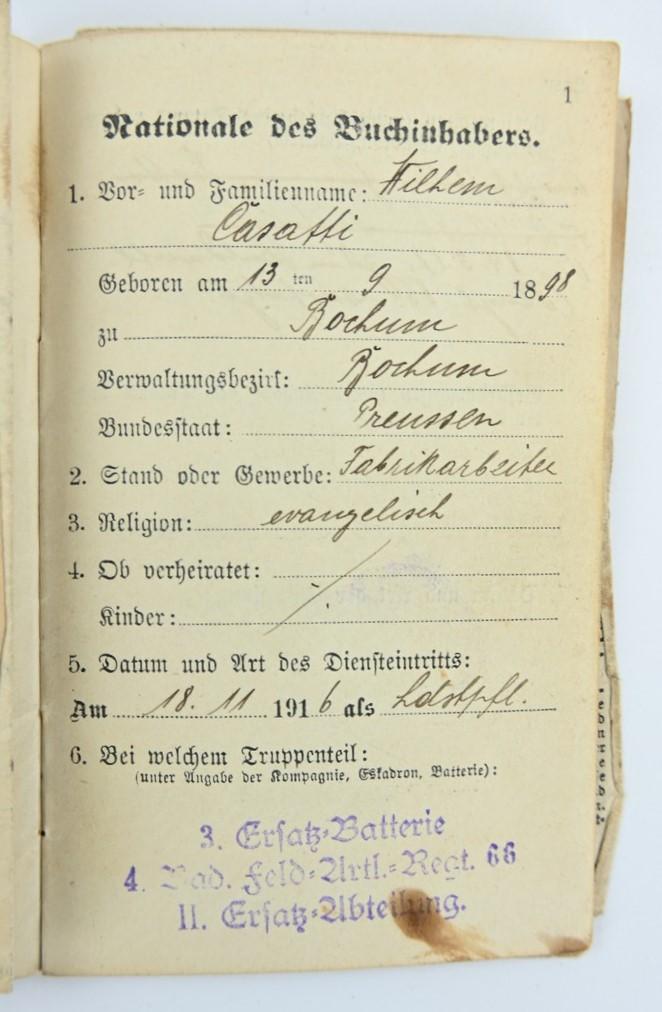 1
Nationale des Buchinhabers.
1. Vor- und Familienname: Wilhem
Casatti
Geboren am 13 ten 9 1898
zu Bochum
Verwaltungsbezirk: Bochum
Bundesstaat: Preussen
2. Stand oder Gewerbe: Fabrikarbeiter
3. Religion: evangelisch
4. Ob verheiratet:
Kinder: ./.
5. Datum und Art des Diensteintritts:
Am 18. 11 1916 als Ldstpfl.
6. Bei welchem Truppenteil:
(unter Angabe der Kompagnie, Eskadron, Batterie):
3. Ersatz-Batterie
4. Bad. Feld-Artl.-Regt. 66
II. Ersatz-Abteilung.